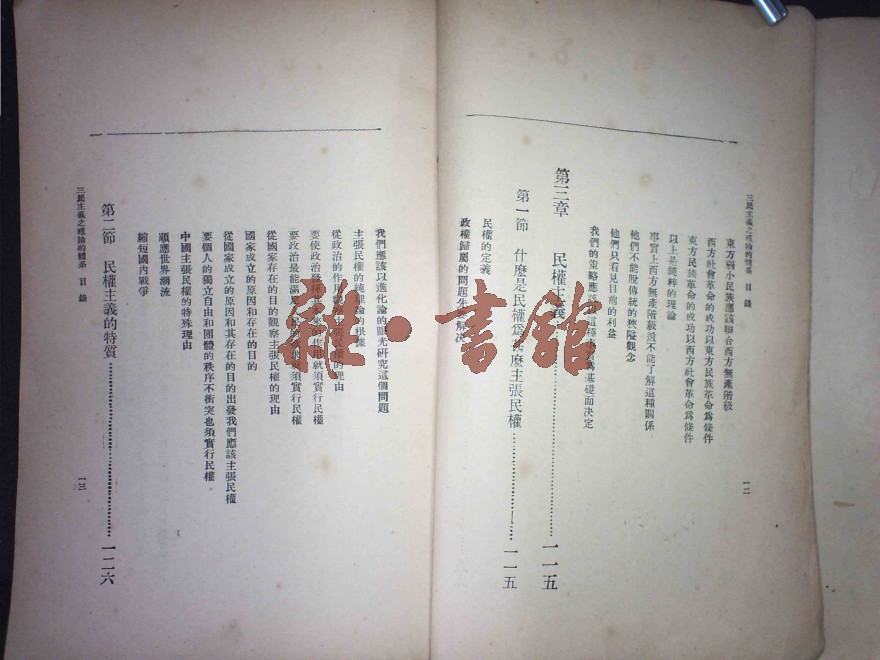 三民主義之理論的體系 目錄
東方弱小民族應該聯合西方無產階級
西方社會革命的成功以東方民族革命爲條件
東方民族革命的成功以西方社會革命爲條件
以上是純粹的理論
事實上西方無產階級還不能了解這種關係
他們不能脫傳統的狹隘觀念
他們只看見目前的利益
我們的策略應該 這種 爲基礎而決定
第三章 民權主義 一一五
第一節 什麼是民權爲 麼主張民權 一一五
民權的定義
政權歸屬的問題 解決
一二
我們應該以進化論的眼光研究這個問題
主張民權的純理論的根據
從政治的作 主張民權的理由
要使政治發揮 的作用就須實行民權
要政治最能滿 須實行民權
從國家存在的目的觀察主張民權的理由
國家成立的原因和存在的目的
從國家成立的原因和其存在的目的出發我們應該主張民權
要個人的獨立自由和團體的秩序不衝突也須實行民權
中國主張民權的特殊理由
順應世界潮流
縮短國內戰爭
第二節 民權主義的特質 一二六
三民主義之理論的體系 目錄
一三
雜·書館